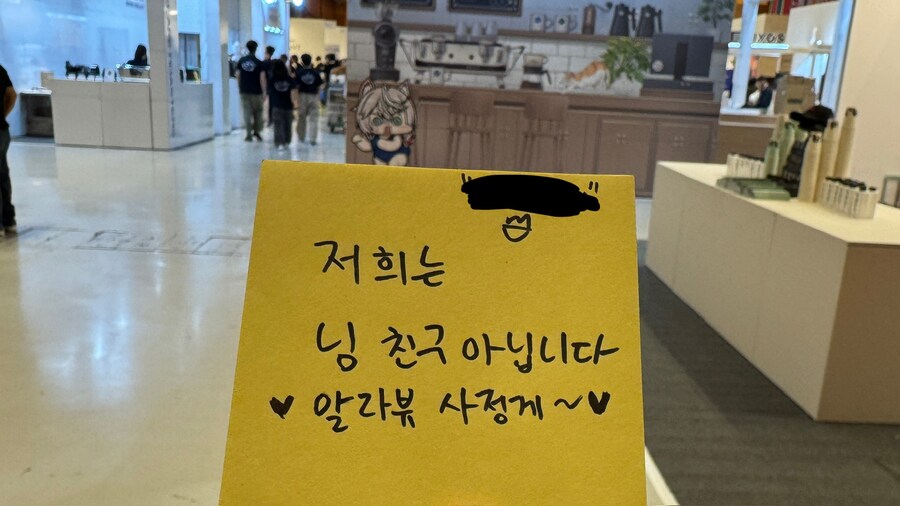 저희는
님 친구 아닙니다
♥ 알라뷰 사정게~♥